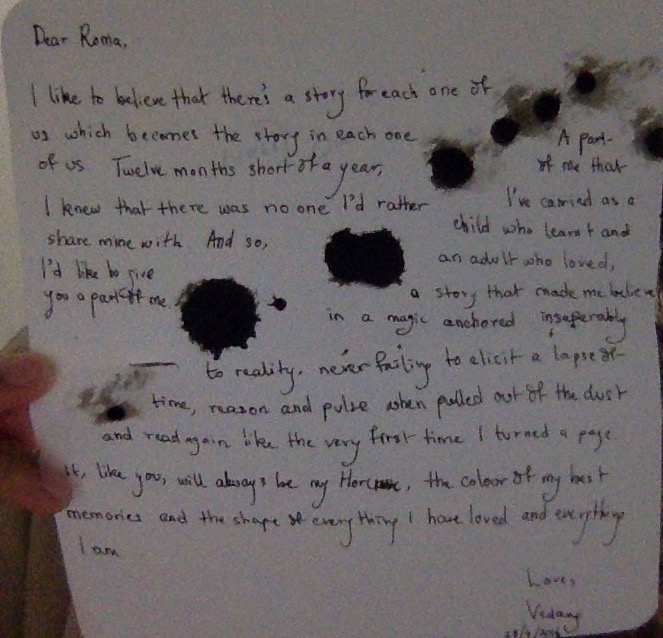 Dear Roma,
I like to believe that there's a story for each one of
us which becomes the story in each one
of us. Twelve months short of a year,
I knew that there was no one I'd rather
share mine with. And so,
I'd like to give
you a part of me.
A part
of me that
I've carried as a
child who learnt and
an adult who loved,
a story that made me believe
in a magic anchored inseperably
to reality, never failing to elicit a lapse of
time, reason and pulse when pulled out of the dust
and read again like the very first time I turned a page.
It, like you, will always be my Horcrux, the colour of my best
memories and the shape of everything I have loved and everything
I am
Love,
Vedang